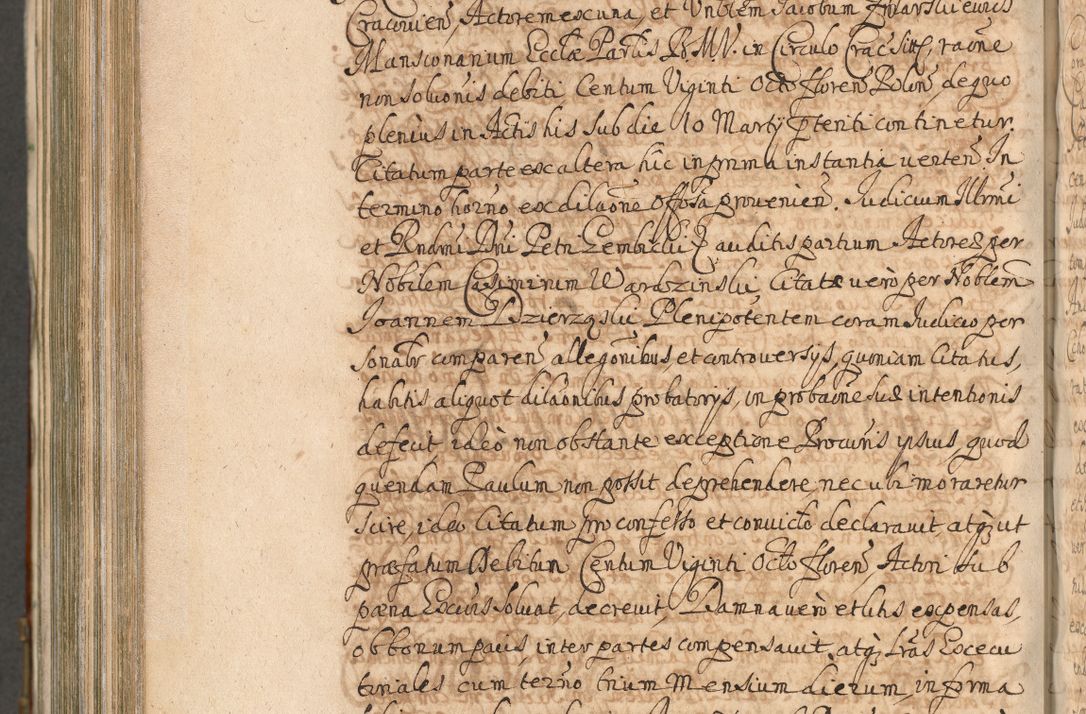 Cracovien, Actorem ex una, et Unblem Jacobum
Mansconarium Eccłæ Parłis B.M.V. in Circulo Crac sitt, raõne
non solvonis debiti Centum Viginti Octo floren Polon, de quo
plenius in Actis his sub die 10 Martij pteriti continetur.
Citatum parte ex altera hic in prma instantia venten. In
termino horno ex dilaõne Offosa provenien. Judicium Illrmi
et Rndmi Dni Petri Gembicki auditis partium Actoreæ per
Nobilem Casimirum Wardozinski Citatæ vero per Noblem
Joannem Dzierząski Plenipotentem coram Judicio per
sonalr comparen allegonibus, et controversijs, quoniam Citatus,
habitis aliquot dilaõnibus probatorijs, in probaõne suæ intentionis
defecit ideò non obstante exceptione Procuris ipsius, quod
quendam Paulum non possit deprehendere, nec ubi moraretur
scire, ideo Citatum pro confesso et convicto declaravit atq; ut
præfatum Debitum Centum Viginti Octo floren Actori sub
pæna Excuns solvat, decrevit, Damna vero et litis expensas,
obbonum pacis, inter partes compensavit atq; Lras Execu
toriales cum terno trium Mensium dierum, in forma